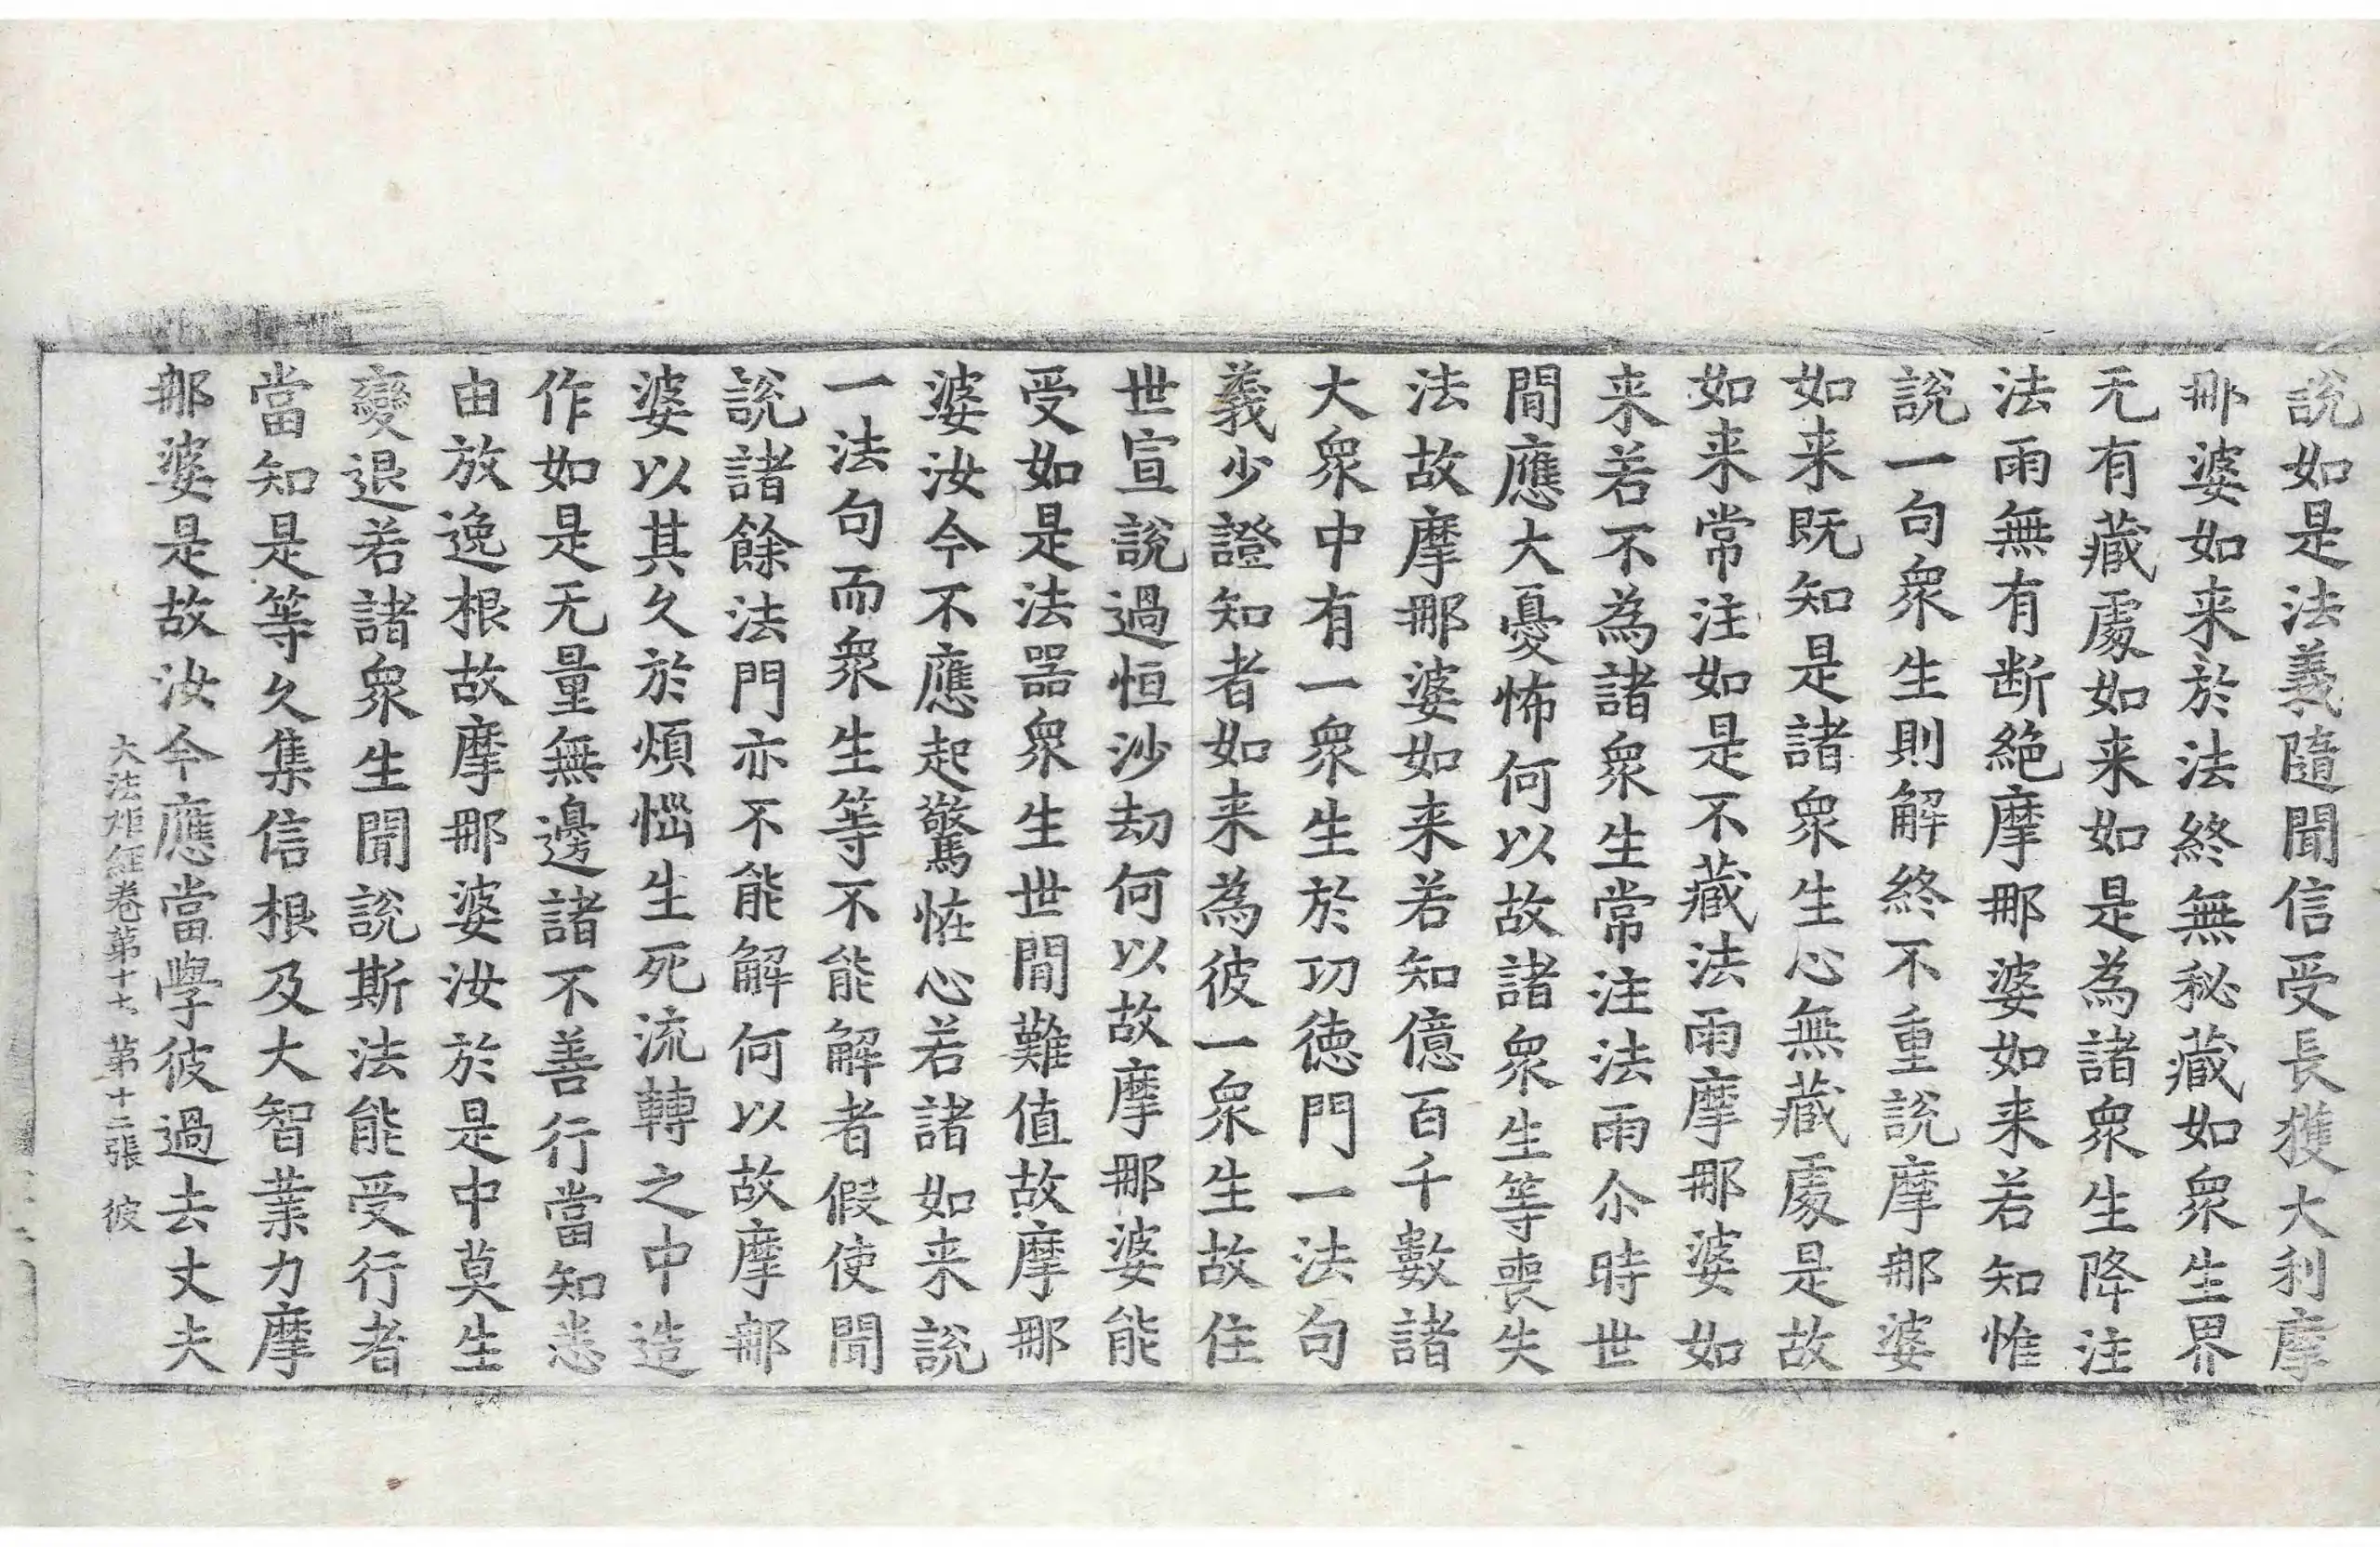 說如是法義隨聞信受長獲大利摩
那婆如来於法終無秘藏如衆生界
无有藏處如来如是為諸衆生降注
法雨無有断絶摩那婆如来若知惟
說一句衆生則解終不重說摩那婆
如来既知是諸衆生心無藏處是故
如来常注如是不藏法雨摩那婆如
来若不為諸衆生常注法雨尒時世
間應大憂怖何以故諸衆生等喪失
法故摩那婆如来若知億百千數諸
大衆中有一衆生於功徳門一法句
義少證知者如来為彼一衆生故住
世宣說過恒沙劫何以故摩那婆能
受如是法器衆生世間難值故摩那
婆汝今不應起驚恠心若諸如来說
一法句而衆生等不能解者假使聞
說諸餘法門亦不能解何以故摩那
婆以其久於煩惱生死流轉之中造
作如是无量無邊諸不善行當知悉
由放逸根故摩那婆汝於是中莫生
變退若諸衆生聞說斯法能受行者
當知是等久集信根及大智業力摩
那婆是故汝今應當學彼過去丈夫
大法炬経卷第十七 第十二張 彼